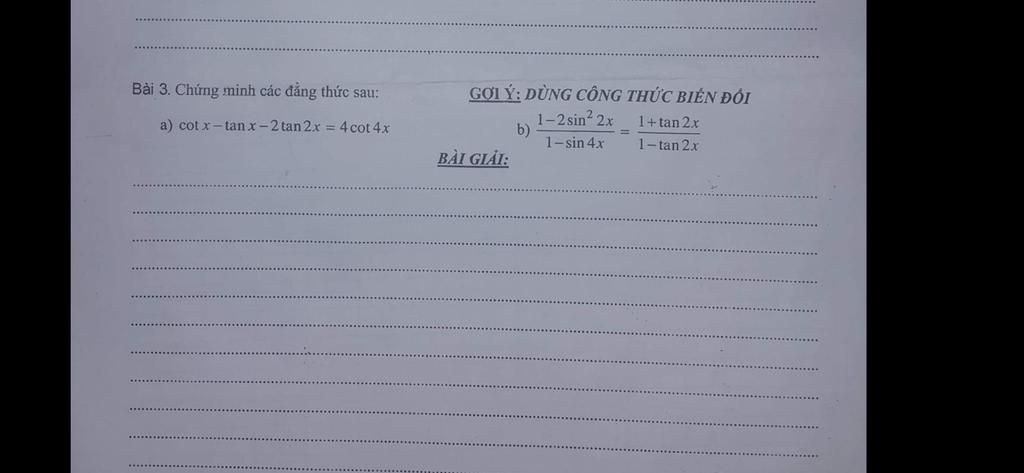 Bài 3. Chứng minh các đẳng thức sau: GỢI Ý: DÙNG CÔNG THỨC BIẾN ĐỔI
a) cot x − tan x − 2 tan 2x = 4 cot 4x b) (1 − 2 sin² 2x)/(1 − sin 4x) = (1 + tan 2x)/(1 − tan 2x)
BÀI GIẢI: